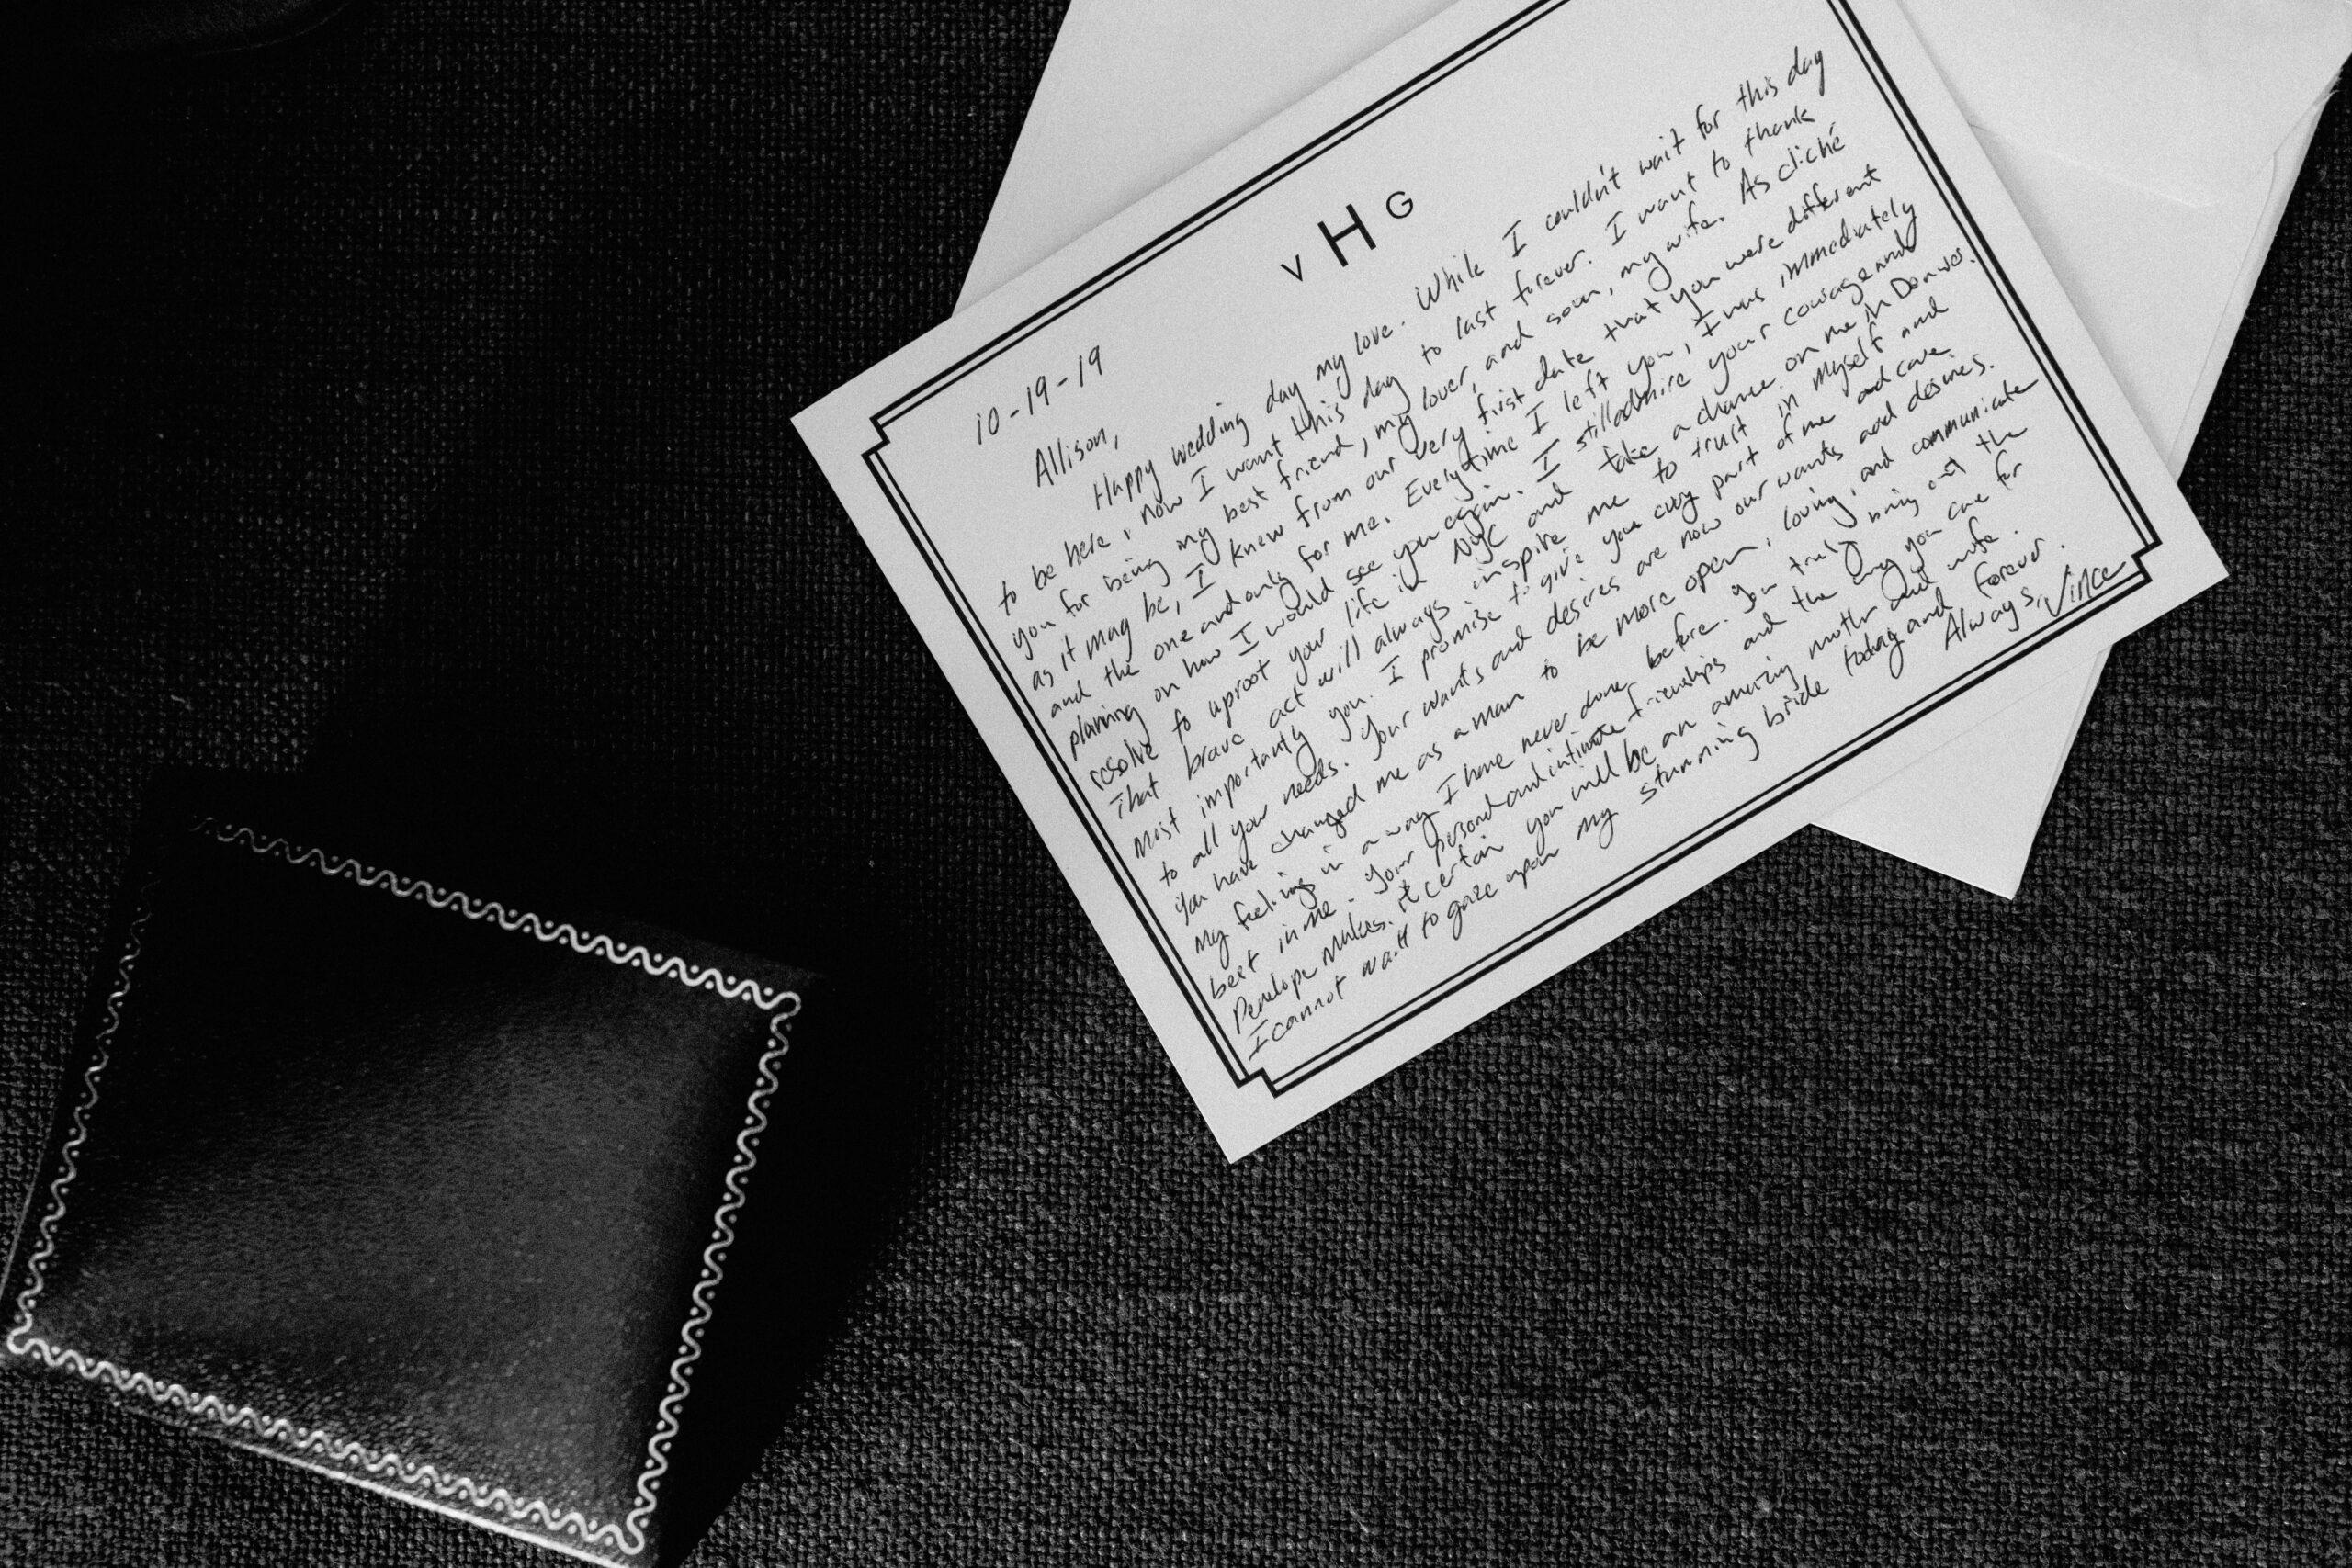 V H G
10-19-19
Allison,
Happy wedding day my love. While I couldn't wait for this day
to be here, now I want this day to last forever. I want to thank
you for being my best friend, my lover, and soon, my wife. As cliché
as it may be, I knew from our very first date that you were different
and the one and only for me. Everytime I left you, I was immediately
planning on how I would see you again. I still admire your courage and
resolve to uproot your life in NYC and take a chance on me in Denver.
That brave act will always inspire me to trust in myself and
most importantly you. I promise to give you every part of me and care
to all your needs. Your wants and desires are now our wants and desires.
You have changed me as a man to be more open, loving, and communicate
my feelings in a way I have never done before. You truly bring out the
best in me. Your personal and intimate friendships and the way you care for
Penelope makes it certain you will be an amazing mother and wife.
I cannot wait to gaze upon my stunning bride today and forever.
Always, Vince